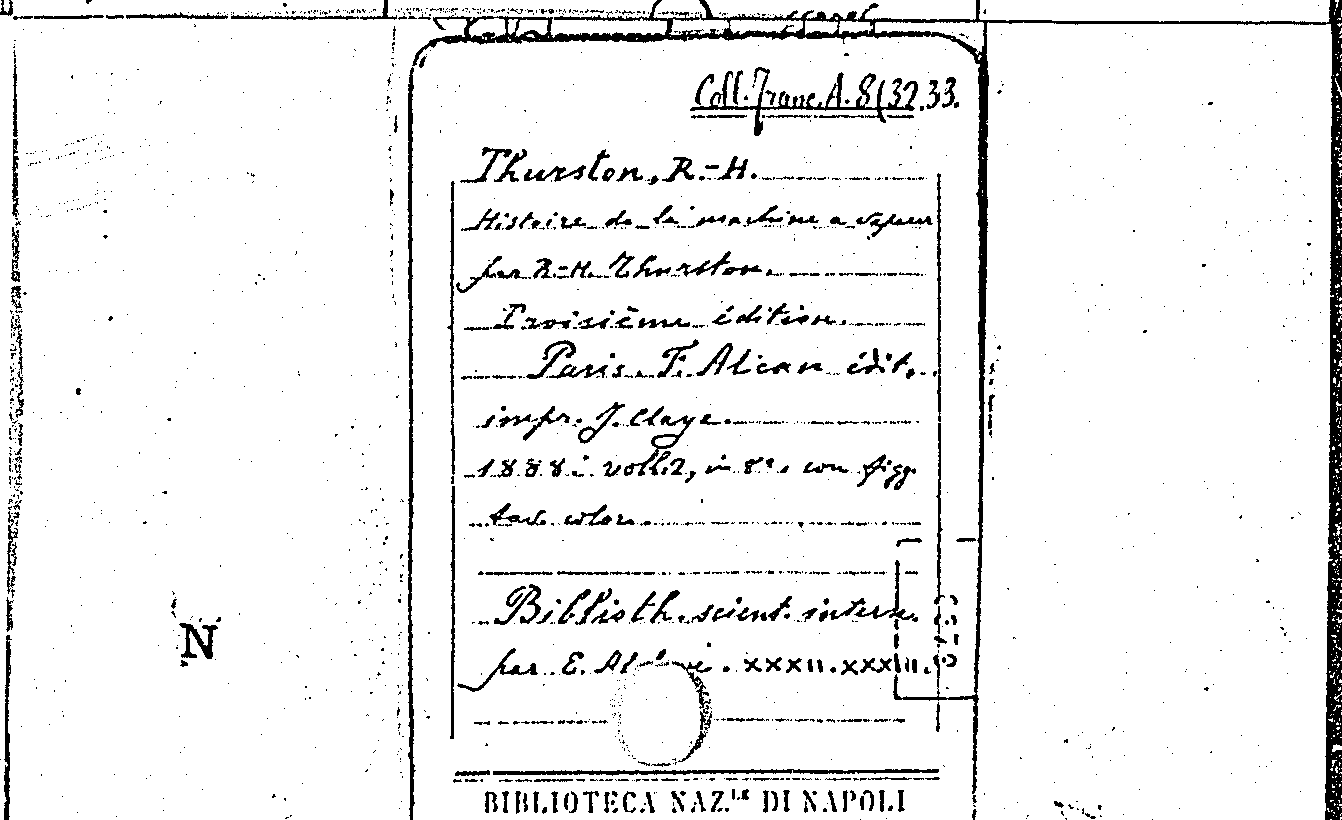 Coll. Franc. A. 8(32.33.
Thurston, R.-H.
Histoire de la machine a vapeur
par R-H. Thurston.
Troisième édition.
Paris. F. Alcan édit.
impr. J. Claye.
1888: voll. 2, in 8°. con figg.
tav. color.
Biblioth. scient. intern.
par E. XXXII.XXXIII.
N
BIBLIOTECA NAZ.LE DI NAPOLI